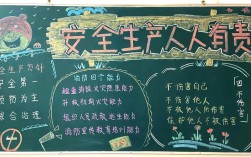 安全生产人人有责
安全生产方针
安全第一
预防为主
综合治理
消防四个能力
检查消除火灾隐患能力
扑救初期火灾能力
组织人员疏散逃生能力
消防宣传教育培训能力
四不伤害
不伤害自己
不伤害他人
不被他人所伤害
保护他人不被伤害